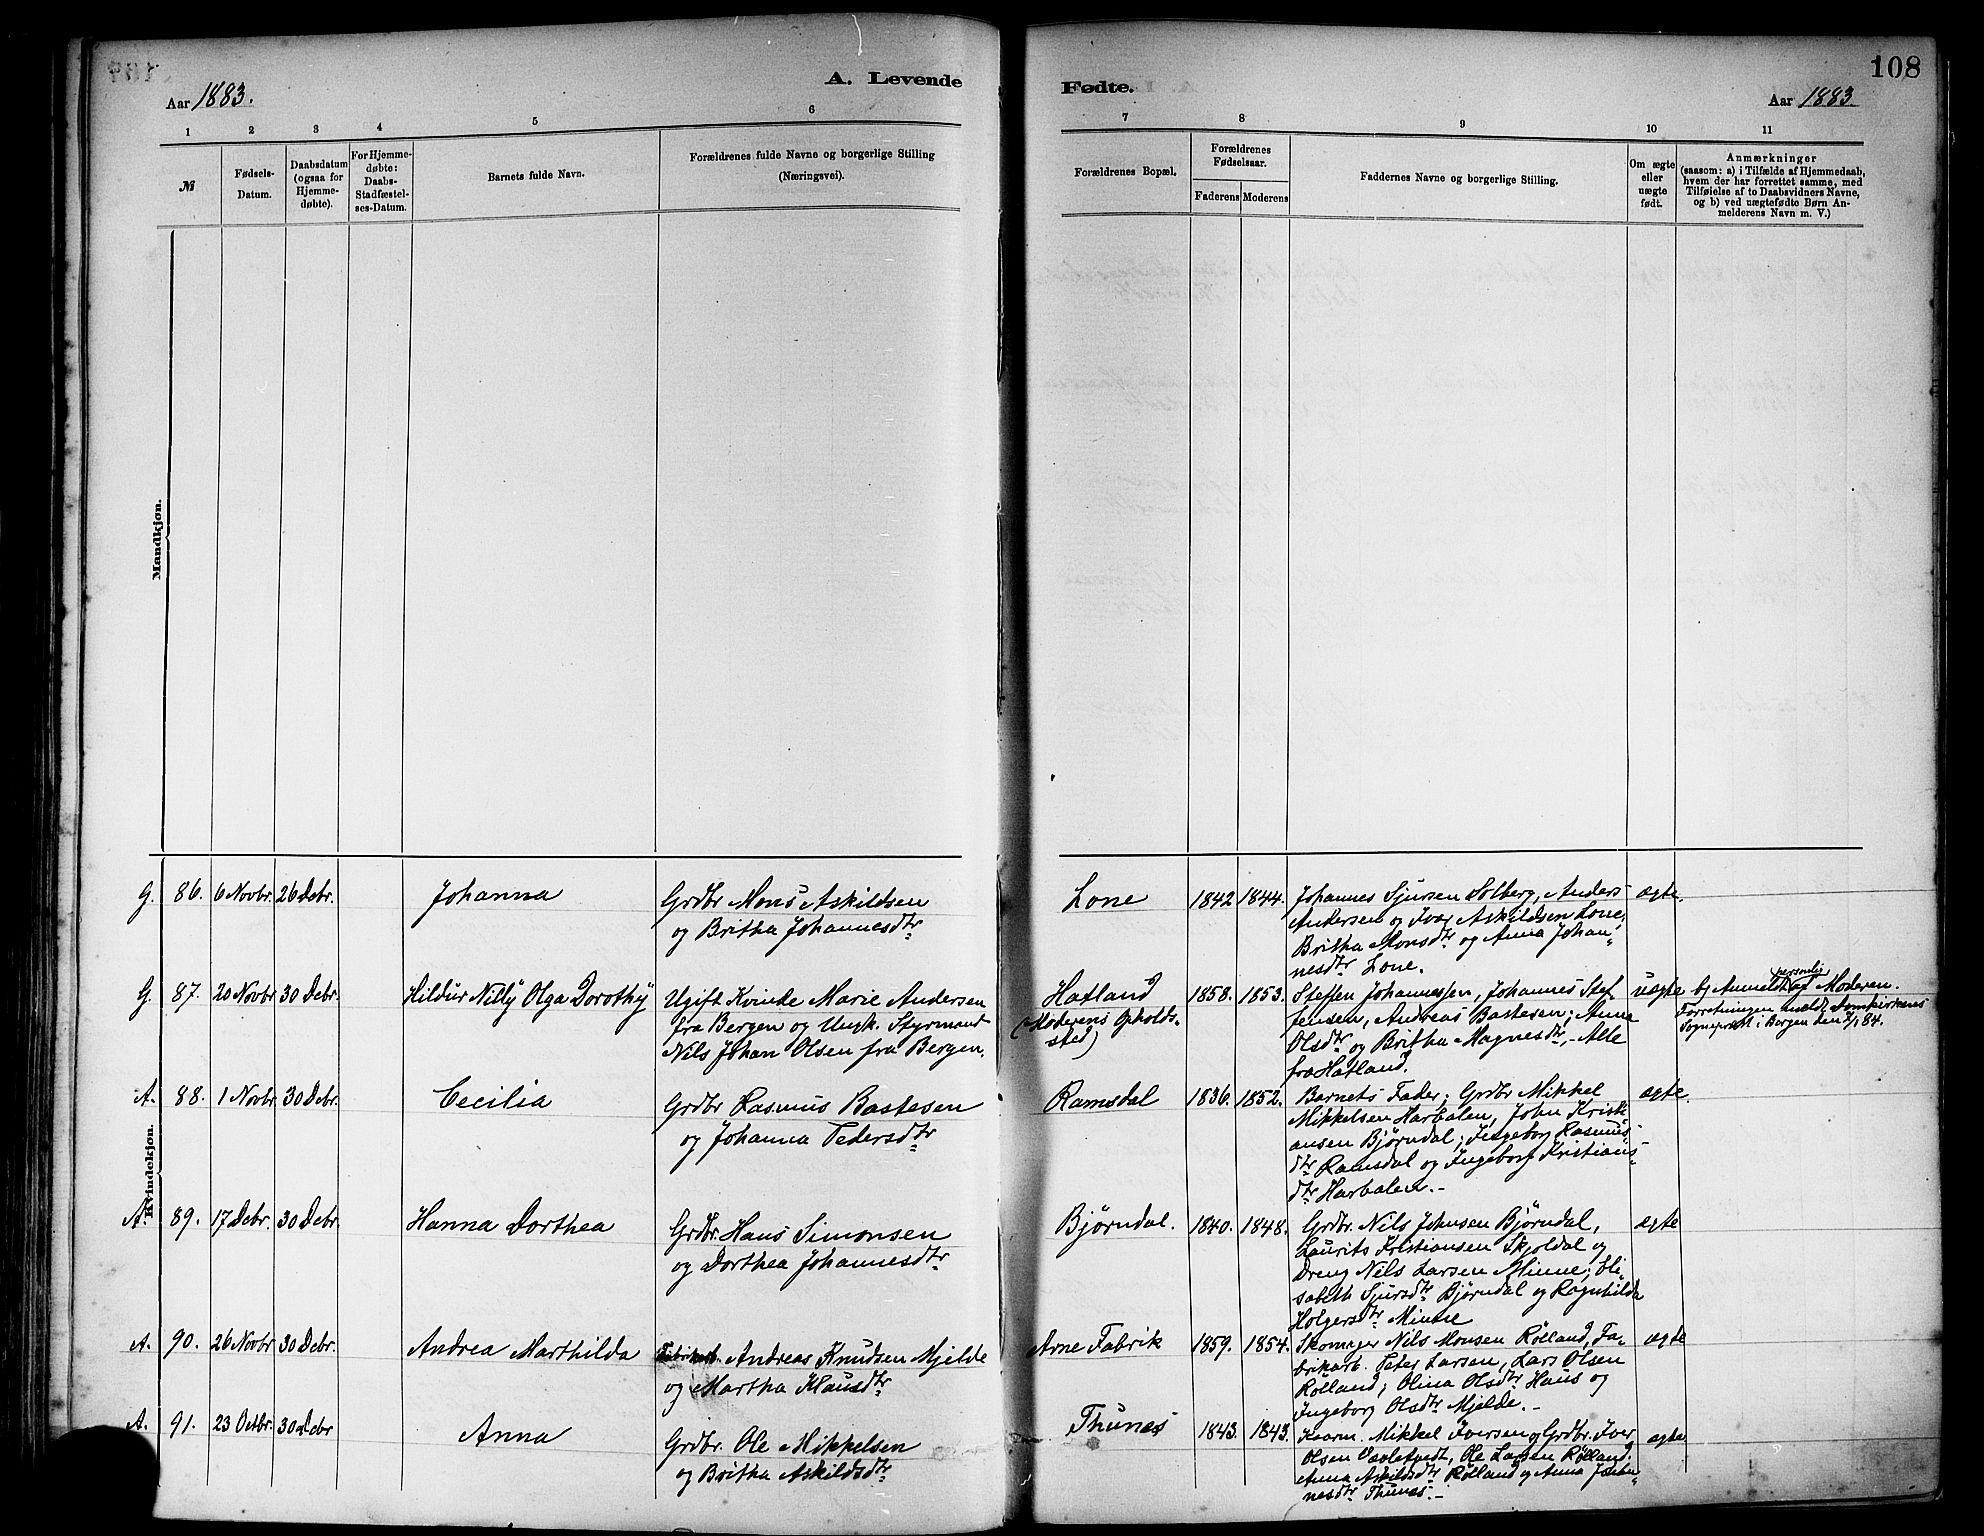 108
A. Levende Fødte.
Aar 1883. Aar 1883.
1 2 3 4 5 6 7 8 9 10 11
№
Fødsels-
Datum.
Daabsdatum
(ogsaa for
Hjemme-
døbte).
For Hjemme-
døbte:
Daabs-
Stadfæstel-
ses-Datum.
Barnets fulde Navn.
Forældrenes fulde Navne og borgerlige Stilling
(Næringsvei).
Forældrenes Bopæl.
Forældrenes
Fødselsaar.
Faderens Moderens
Faddernes Navne og borgerlige Stilling.
Om ægte
eller
uægte
født.
Anmærkninger
(saasom: a) i Tilfælde af Hjemmedaab,
hvem der har forrettet samme, med
Tilføielse af to Daabsvidners Navne,
og b) ved uægtefødte Børn An-
melderens Navn m. V.)
Mandkjøn.
Kvindekjøn.
G. 86. 6 Novbr. 26 Debr. Johanna
Grdbr Mons Askildsen
og Britha Johannesdtr
Lone 1842 1844.
Johannes Sjursen Solberg, Anders
Andersen og Ivar Askildsen Lone,
Britha Monsdtr og Anna Johan-
nesdtr Lone.
ægte.
G. 87. 20 Novbr 30 Debr. Hildur Nilly Olga Dorothy
Ugift Kvinde Marie Andersen
fra Bergen og Ungk. Styrmand
Nils Johan Olsen fra Bergen.
Hatland
(Moderens Opholds-
sted)
1858. 1853.
Steffen Johannessen, Johannes Stef-
fensen, Andreas Bastesen; Anna
Olsdtr og Britha Magnesdtr, - Alle
fra Hatland.
uægte
b) Anmeldt personlig af Moderen.
Forretningen meldt Domkirkens
Sogneprest i Bergen den 2/1 84.
A. 88. 1 Novbr 30 Debr. Cecilia
Grdbr Rasmus Bastesen
og Johanna Pedersdtr
Ramsdal 1836. 1852.
Barnets Fader; Grdbr Mikkel
Mikkelsen Harbalen, John Kristi-
ansen Bjørndal; Ingeborg Rasmus-
dtr Ramsdal og Ingeborg Kristians-
dtr Harbalen. -
ægte.
A. 89. 17 Debr. 30 Debr Hanna Dorthea
Grdbr. Hans Simonsen
og Dorthea Johannesdtr
Bjørndal. 1840. 1848.
Grdbr. Nils Johnsen Bjørndal,
Laurits Kristiansen Skjoldal og
Dreng Nils Larsen Minne; Eli-
sabeth Sjursdtr Bjørndal og Ragnhilda
Holgersdtr Minne
ægte
A. 90. 26 Novbr 30 Debr. Andrea Marthilda
Fabrikarb. Andreas Knudsen Mjelde
og Martha Klausdtr
Arne Fabrik 1859. 1854.
Skomager Nils Monsen Rølland, Fa-
brikarb. Peter Larsen, Lars Olsen
Rølland; Olina Olsdtr Haus og
Ingeborg Olsdtr Mjelde. -
ægte
A. 91. 23 Octbr. 30 Debr Anna
Grdbr. Ole Mikkelsen
og Britha Askildsdtr
Thunes 1843. 1843.
Kaarm. Mikkel Iversen og Grdbr. Iver
Olsen Ole Larsen Rølland;
Anna Askildsdtr Rølland og Anna Johan-
nesdtr Thunes. -
ægte